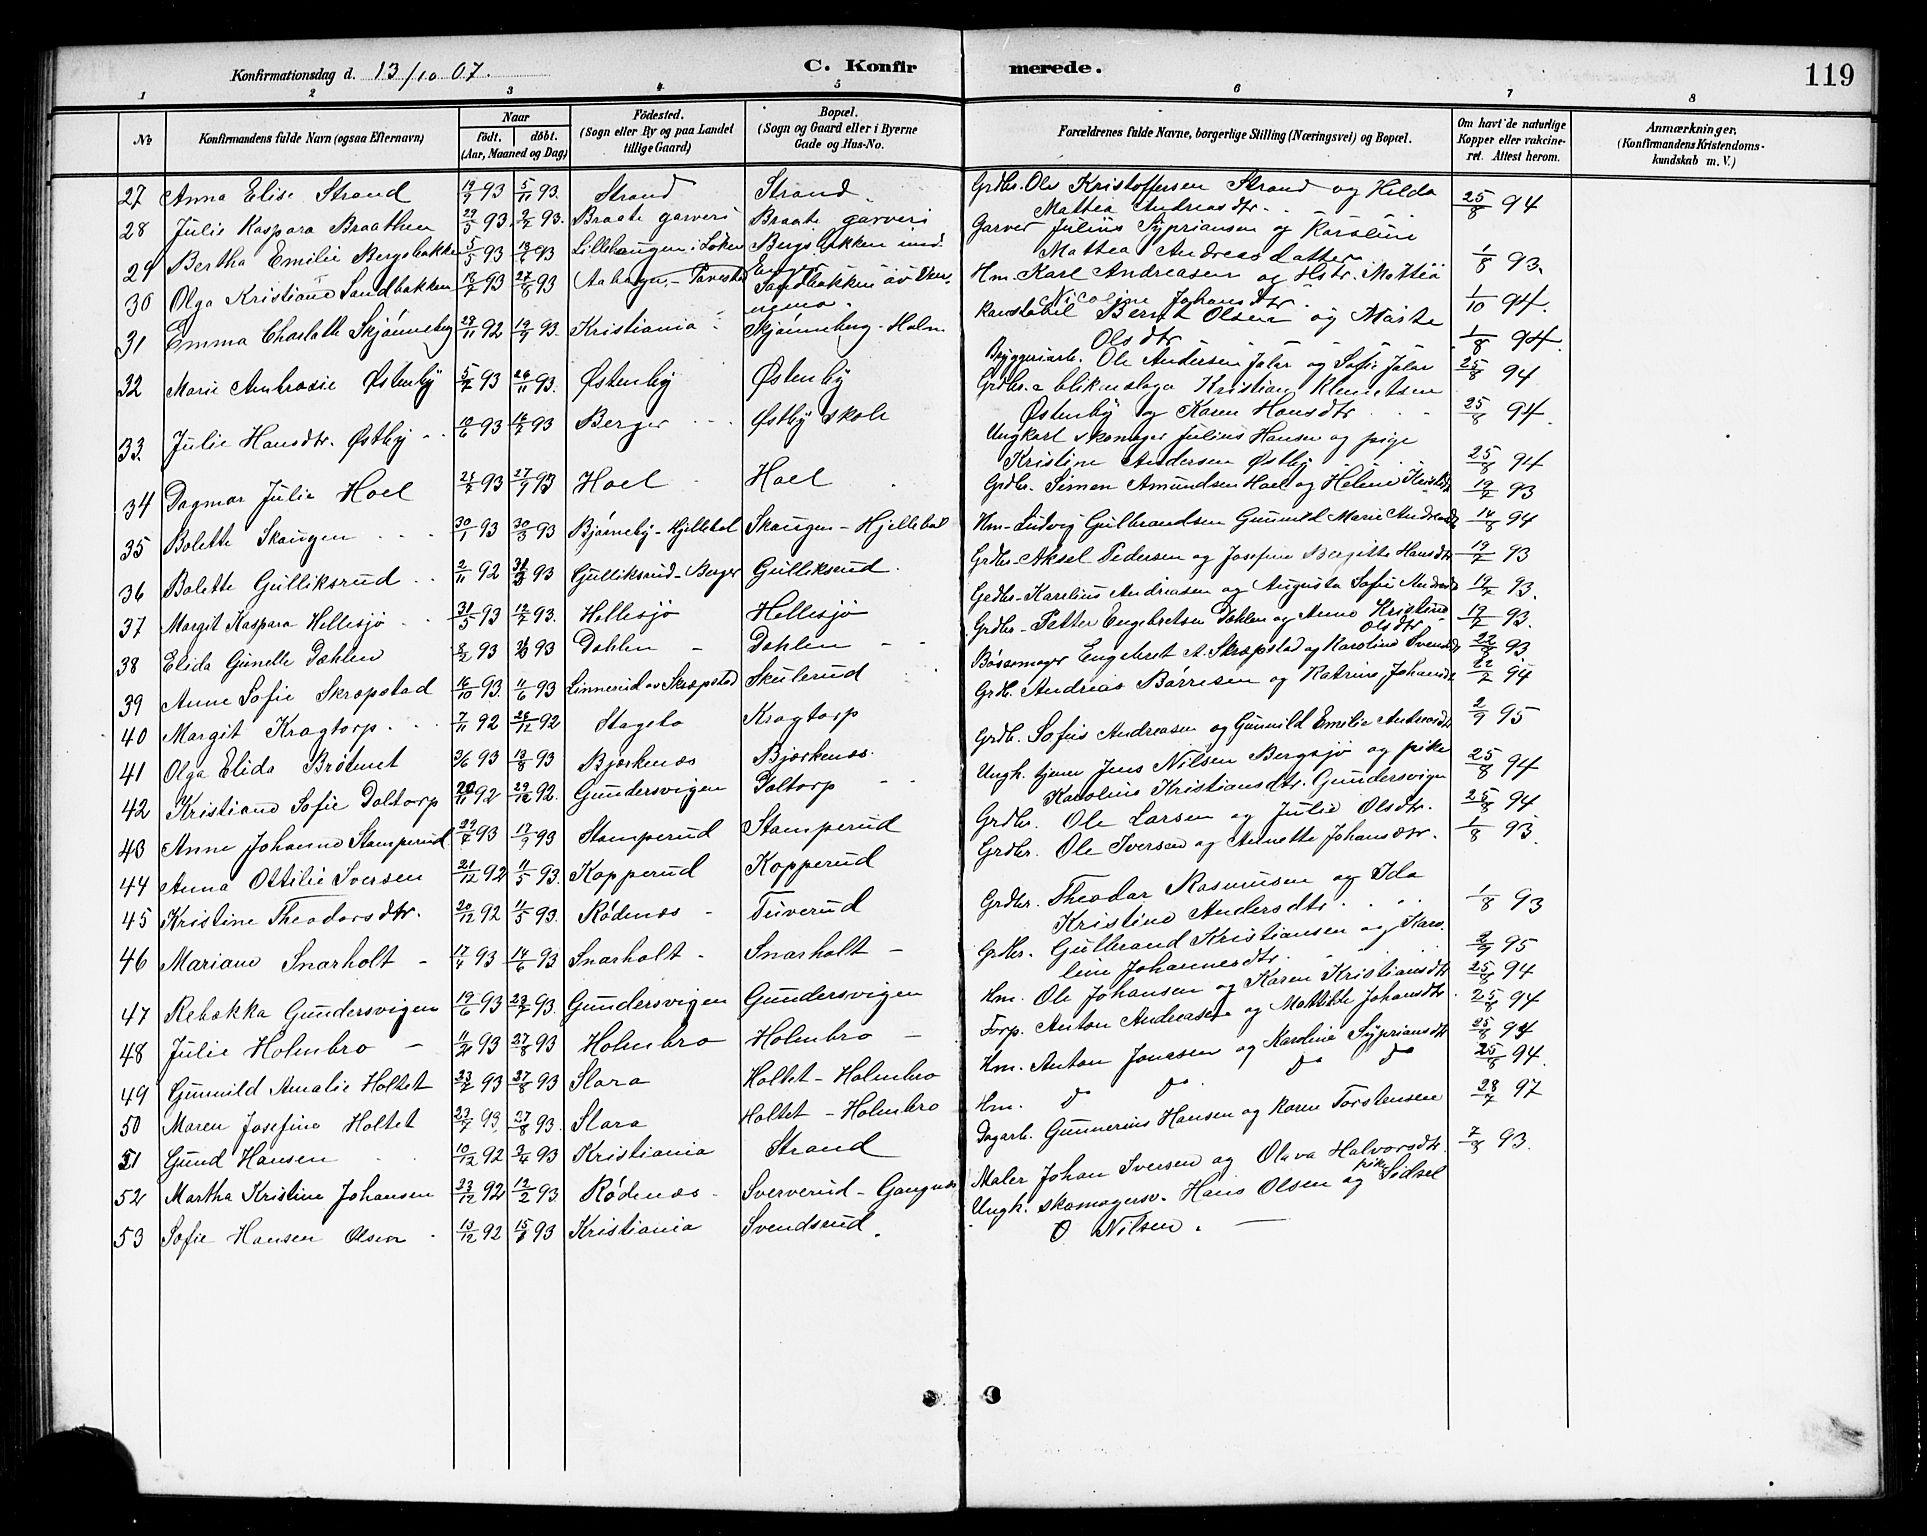 Konfirmationsdag d. 13/10 07. C. Konfirmerede. 119
1 2 3 4 5 6 7 8
No Konfirmandens fulde Navn (ogsaa Efternavn) Naar födt. döbt. (Aar, Maaned og Dag) Födested. (Sogn eller By og paa Landet tillige Gaard) Bopæl. (Sogn og Gaard eller i Byerne Gade og Hus-No. Forældrenes fulde Navne, borgerlige Stilling (Næringsvei) og Bopæl. Om havt de naturlige Kopper eller vakcineret. Attest herom. Anmærkninger. (Konfirmandens Kristendomskundskab m. V.)
27 Anna Elise Strand 19/9 93 5/11 93. Strand Strand. Grdbr. Ole Kristoffersen Strand og Hilda Mattea Andreasdtr. 25/8 94
28 Julie Kaspara Braathen 29/5 93. 2/7 93. Braate garveri Braate garveri Garver Julius Sypriansen og Karoline Mattea Andreasdatter 1/8 93.
29 Bertha Emilie Bergsbakken 5/5 93 18/6 93 Lillehaugen i Löken Bergsbakken und. Hm. Karl Andreasen og Hstr. Mattia Nicoline Johansdtr. 1/10 94.
30 Olga Kristiane Sandbakken 13/7 93 27/8 93 Sandbakken av Konstabel Bernt Olsen og Marte Olsdtr 1/8 94.
31 Emma Charlotte Skjönneberg 29/11 92 19/9 93. Kristiania Skjönneberg - Holm. Bryggeriarb. Ole Andersen Jalar og Sofie Jalar 25/8 94
32 Marie Ambrosie Østenby 5/7 93 26/11 93. Østenby Østenby Grdbr. & blikenslager Kristian Klemetsen Østenby og Karen Hansdtr 25/8 94.
33. Julie Hansdtr. Østby 19/6 93 16/7 93 Berger Østby skole Ungkarl skomager Julius Hansen og pige Kristine Andersen Østby 25/8 94
34 Dagmar Julie Hoel 25/7 93 27/9 93 Hoel Hoel Grdbr. Simen Amundsen Hoel og Helene 19/7 93
35 Bolette Skaugen 30/1 93 30/3 93 Bjørneby - Hjellebøl Skaugen - Hjellebøl Hm. Ludvig Gulbrandsen Gunnild Marie Andreasdtr 14/8 94
36 Bolette Gulliksrud 2/11 92 31/3 93 Gulliksrud - Berger Gulliksrud. Grdbr. Aksel Pedersen og Josefine Bergitte Hansdtr 19/7 93
37 Margit Kaspara Hellesjö 31/5 93 19/7 93. Hellesjö Hellesjö Grdbr. Karelius Andreasen og Augusta Sofie Andreasdtr 19/7 93.
38 Elida Gunelle Dæhlen 8/2 93 93 Dæhlen Dæhlen Grdbr. Petter Engebretsen Dæhlen og Anne Kristine Olsdtr 19/7 93.
39 Anne Sofie Skræpstad 16/10 93. 11/6 93 Linnerud av Skræpstad Skulerud Bössemager Engebret A. Skræpstad og Karoline Svendsdtr 22/8 93
40 Margit Kragtorp. 7/11 92 26/12 92 Stageto Kragtorp Grdb. Andreas Börresen og Katrine Johansdtr 22/2 94
41 Olga Elida Brötmet 3/6 93 13/8 93 Bjørkenæs Bjørkenæs. Grdb. Sofus Andreasen og Gunnild Emilie Andreasdtr 2/9 95
42 Kristiane Sofie Daltorp 20/11 92 29/12 92. Gundersvigen Daltorp Ungk. tjener Jens Nilsen Bergsjö og pike Karoline Kristiansdtr. Gundersvigen 25/8 94
43 Anne Johanne Stamperud 29/7 93 17/9 93 Stamperud Stamperud Grdbr. Ole Larsen og Julie Olsdtr. 25/8 94
44 Anna Ottilie Iversen 21/12 92 11/5 93. Kopperud Kopperud Grdbr. Ole Iversen og Annette Johansdtr. 1/8 93
45 Kristine Theodorsdtr. 20/12 92 11/5 93. Rødenæs Tuverud Grdbr. Theodor Rasmussen og Ida Kristine Andersdtr. 1/8 93
46 Mariane Snarholt 17/4 93 14/6 93 Snarholt Snarholt Grdbr. Gulbrand Kristiansen og Karoline Johannesdtr. 2/9 95
47 Rebekka Gundersvigen 19/6 93 23/7 93. Gundersvigen Gundersvigen Hm. Ole Johansen og Karen Kristiansdtr 25/8 94
48 Julie Holmbro 93 27/8 93 Holmbro Holmbro Torp. Anton Andreasen og Mathilde Johansdtr. 25/8 94
49 Gunnild Amalie Holtet 23/7 93 27/8 93 Slora Holtet - Holmbro Hm. Anton Jonasen og Karoline Sypriansdtr 25/8 94
50 Maren Josefine Holtet 23/7 93. 27/8 93. Slora Holtet - Holmbro Hm. Do Do Do Do 25/8 94.
51 Gund Hansen 10/12 92 2/4 93 Kristiania Strand Dagarb. Gunnerius Hansen og Karen Torstensen 28/7 97
52 Martha Kristine Johansen 23/12 92 12/2 93. Rødenæs Sververud - Gangnæs Maler Johan Iversen og Olava Halvorsdtr. 7/8 93.
53 Sofie Hansen Olsen 13/12 92 15/6 93 Kristiania Svendsrud. Ungk. skomagersv. Hans Olsen og pike Sidsel O Nilsen.